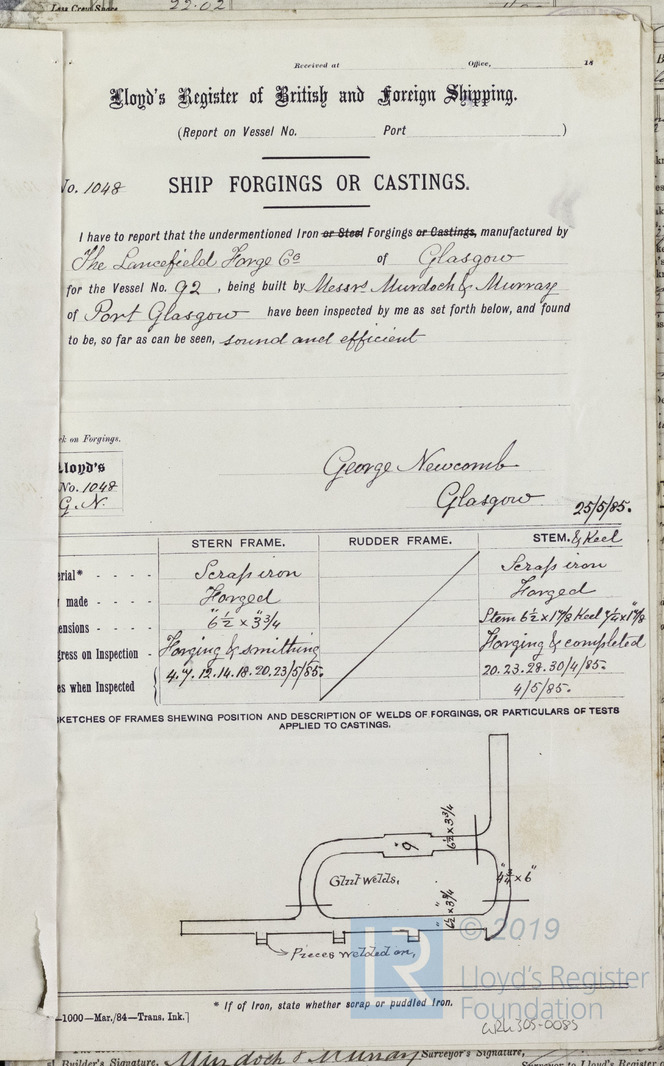 Less Crew Space 22.02
Received at Office, 18
Lloyd's Register of British and Foreign Shipping.
(Report on Vessel No. Port )
No. 1048 SHIP FORGINGS OR CASTINGS.
I have to report that the undermentioned Iron or Steel Forgings or Castings, manufactured by
The Lancefield Forge Co of Glasgow
for the Vessel No. 92, being built by Messrs Murdoch & Murray
of Port Glasgow have been inspected by me as set forth below, and found
to be, so far as can be seen, sound and efficient
on Forgings.
Lloyd's
No. 1048
G. N.
George Newcomb
Glasgow 25/5/85.
STERN FRAME. RUDDER FRAME. STEM. & Keel
erial* - - - - Scrap iron Scrap iron
made - - - - Forged Forged
ensions - - - - 6½" × 3¾" Stem 6½ × 1⅞ Keel 7½ × 1⅞
gress on Inspection - Forging & smithing Forging & completed
es when Inspected 4.7.12.14.18.20.23/5/85. 20.23.28.30/4/85.
4/5/85.
SKETCHES OF FRAMES SHEWING POSITION AND DESCRIPTION OF WELDS OF FORGINGS, OR PARTICULARS OF TESTS
APPLIED TO CASTINGS.
6½ × 3¾
9"
Glut welds,
4¾" × 6"
6½ × 3¾"
Pieces welded on,
© 2019
LR
Lloyd's Register
Foundation
* If of Iron, state whether scrap or puddled Iron.
—1000—Mar./84—Trans. Ink.]
WRL305-0085
Builder's Signature, Murdoch & Murray Surveyor's Signature,
Surveyor to Lloyd's Register